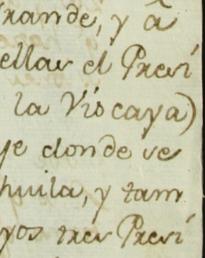 rande, y â
ellas el Presi
la Viscaya)
ye donde se
huila, y tam
yos tres Presi